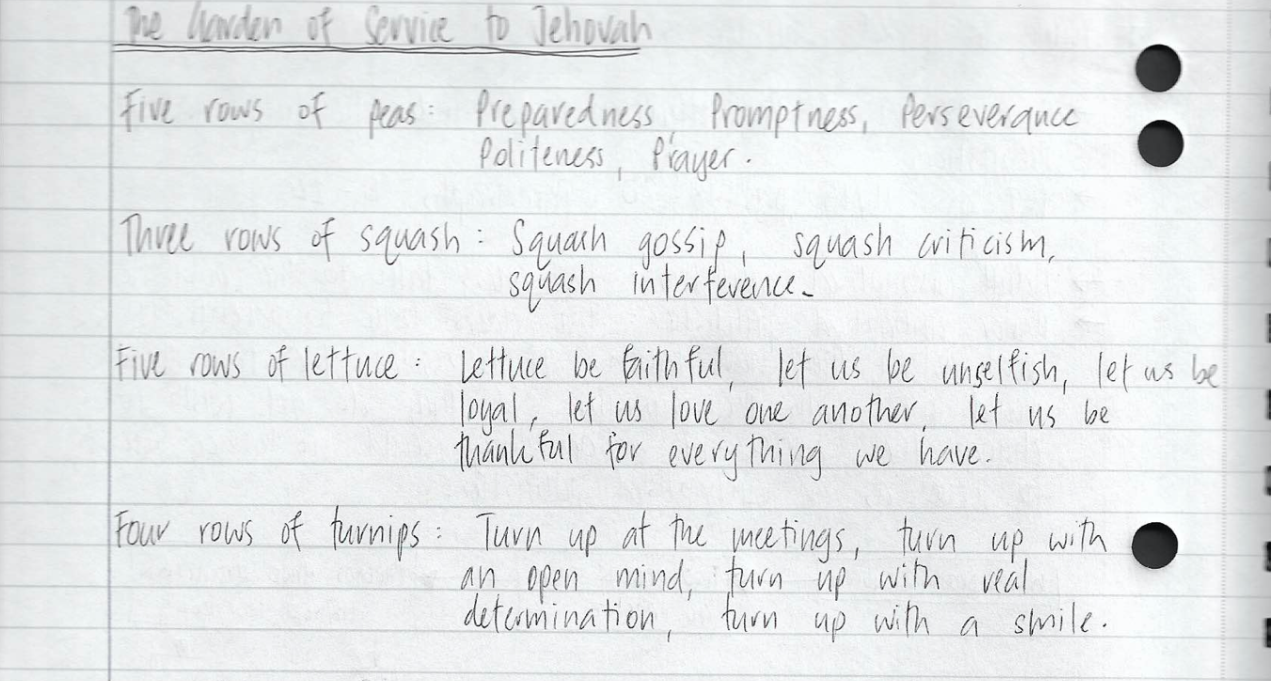 The Garden of Service to Jehovah
Five rows of peas: Preparedness, Promptness, Perseverance
Politeness, Prayer.
Three rows of squash: Squash gossip, squash criticism,
squash interference.
Five rows of lettuce: Lettuce be faithful, let us be unselfish, let us be
loyal, let us love one another, let us be
thankful for everything we have.
Four rows of turnips: Turn up at the meetings, turn up with
an open mind, turn up with real
determination, turn up with a smile.